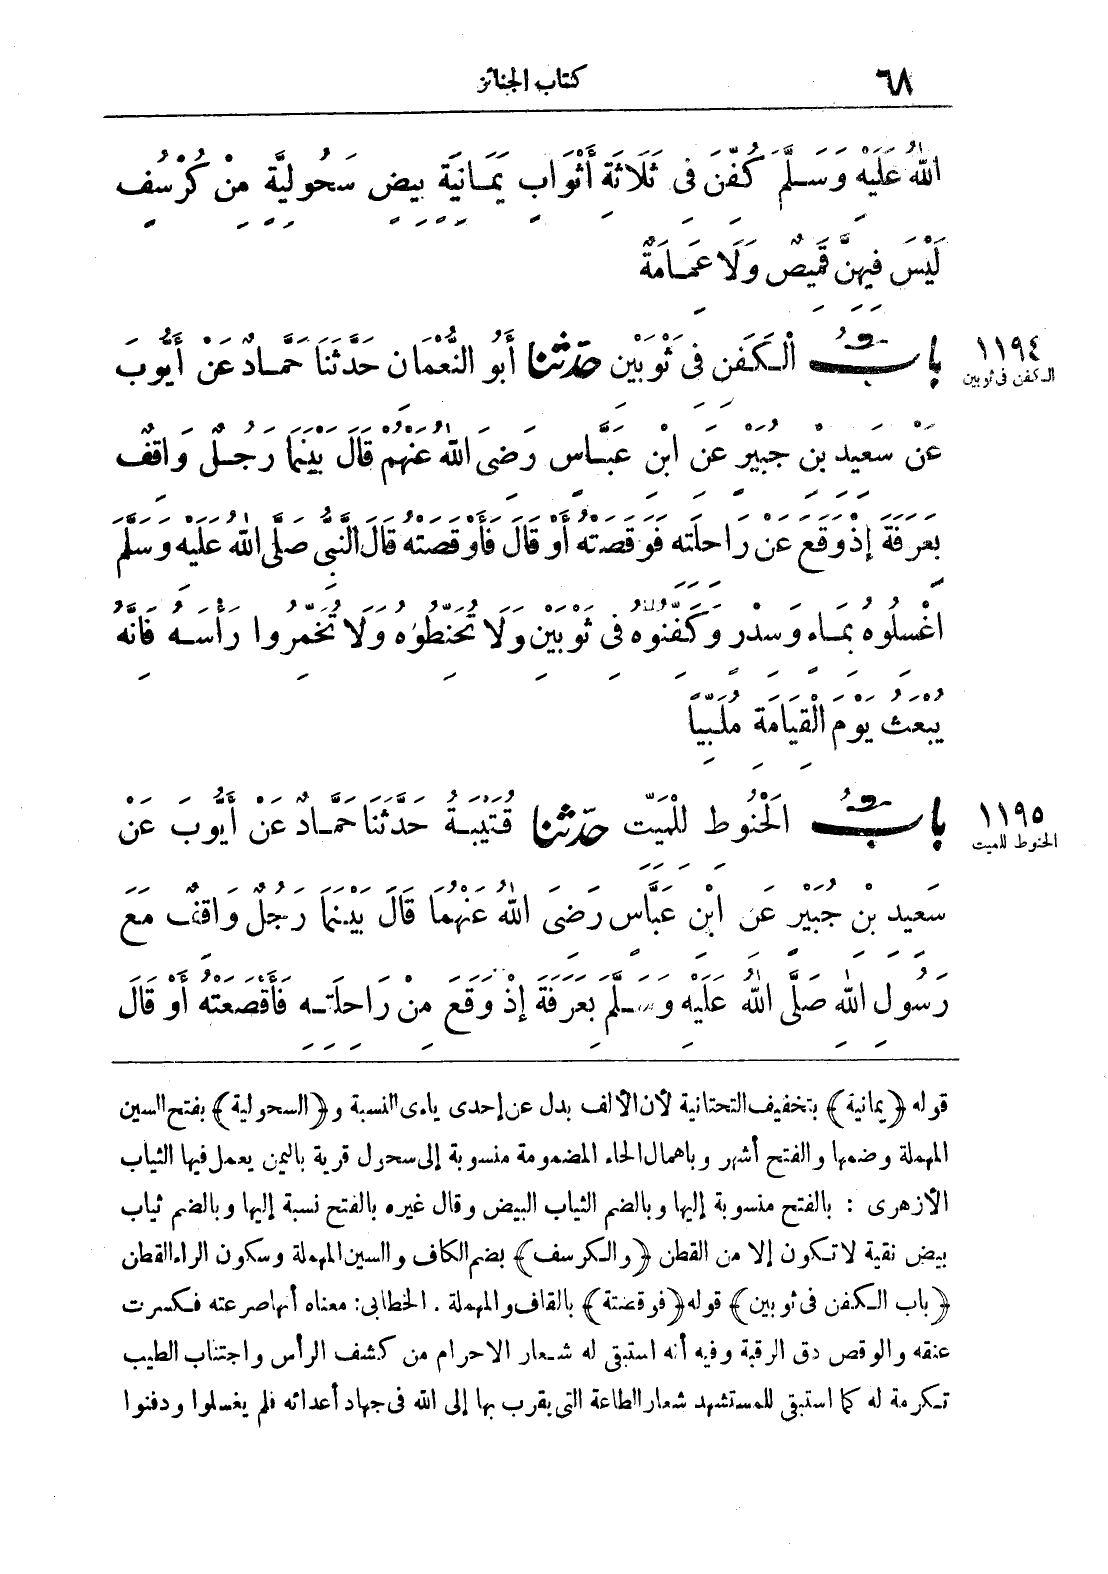 ٦٨ كتاب الجنائز
اللهُ عَلَيْهِ وَسَلَّمَ كُفِّنَ فِى ثَلَاثَةِ أَثْوَابٍ يَمَانِيَةٍ بِيضٍ سَحُولِيَّةٍ مِنْ كُرْسُفٍ
لَيْسَ فِيهِنَّ قَمِيصٌ وَلَا عِمَامَةٌ
١١٩٤ الكفن فى ثوبين
بابٌ الْكَفَنِ فِى ثَوْبَيْنِ حَدَّثَنَا أَبُو النُّعْمَانِ حَدَّثَنَا حَمَّادٌ عَنْ أَيُّوبَ
عَنْ سَعِيدِ بْنِ جُبَيْرٍ عَنِ ابْنِ عَبَّاسٍ رَضِىَ اللهُ عَنْهُمْ قَالَ بَيْنَمَا رَجُلٌ وَاقِفٌ
بِعَرَفَةَ إِذْ وَقَعَ عَنْ رَاحِلَتِهِ فَوَقَصَتْهُ أَوْ قَالَ فَأَوْقَصَتْهُ قَالَ النَّبِىُّ صَلَّى اللهُ عَلَيْهِ وَسَلَّمَ
اغْسِلُوهُ بِمَاءٍ وَسِدْرٍ وَكَفِّنُوهُ فِى ثَوْبَيْنِ وَلَا تُحَنِّطُوهُ وَلَا تُخَمِّرُوا رَأْسَهُ فَإِنَّهُ
يُبْعَثُ يَوْمَ الْقِيَامَةِ مُلَبِّيًا
١١٩٥ الحنوط للميت
بابٌ الْحَنُوطِ لِلْمَيِّتِ حَدَّثَنَا قُتَيْبَةُ حَدَّثَنَا حَمَّادٌ عَنْ أَيُّوبَ عَنْ
سَعِيدِ بْنِ جُبَيْرٍ عَنِ ابْنِ عَبَّاسٍ رَضِىَ اللهُ عَنْهُمَا قَالَ بَيْنَمَا رَجُلٌ وَاقِفٌ مَعَ
رَسُولِ اللهِ صَلَّى اللهُ عَلَيْهِ وَسَلَّمَ بِعَرَفَةَ إِذْ وَقَعَ مِنْ رَاحِلَتِهِ فَأَقْصَعَتْهُ أَوْ قَالَ
قوله ﴿يمانية﴾ بتخفيف التحتانية لأن الألف بدل عن إحدى ياءى النسبة و﴿السحولية﴾ بفتح السين
المهملة وضمها والفتح أشهر وباهمال الحاء المضمومة منسوبة إلى سحول قرية باليمن يعمل فيها الثياب
الأزهرى : بالفتح منسوبة إليها وبالضم الثياب البيض وقال غيره بالفتح نسبة إليها وبالضم ثياب
بيض نقية لا تكون إلا من القطن ﴿والكرسف﴾ بضم الكاف والسين المهملة وسكون الراء القطن
﴿باب الكفن فى ثوبين﴾ قوله ﴿فوقصته﴾ بالقاف والمهملة . الخطابى: معناه أنها صرعته فكسرت
عنقه والوقص دق الرقبة وفيه أنه استبقى له شعار الاحرام من كشف الرأس واجتناب الطيب
تكرمة له كما استبقى للمستشهد شعار الطاعة التى يقرب بها إلى الله فى جهاد أعدائه فلم يغسلوا ودفنوا